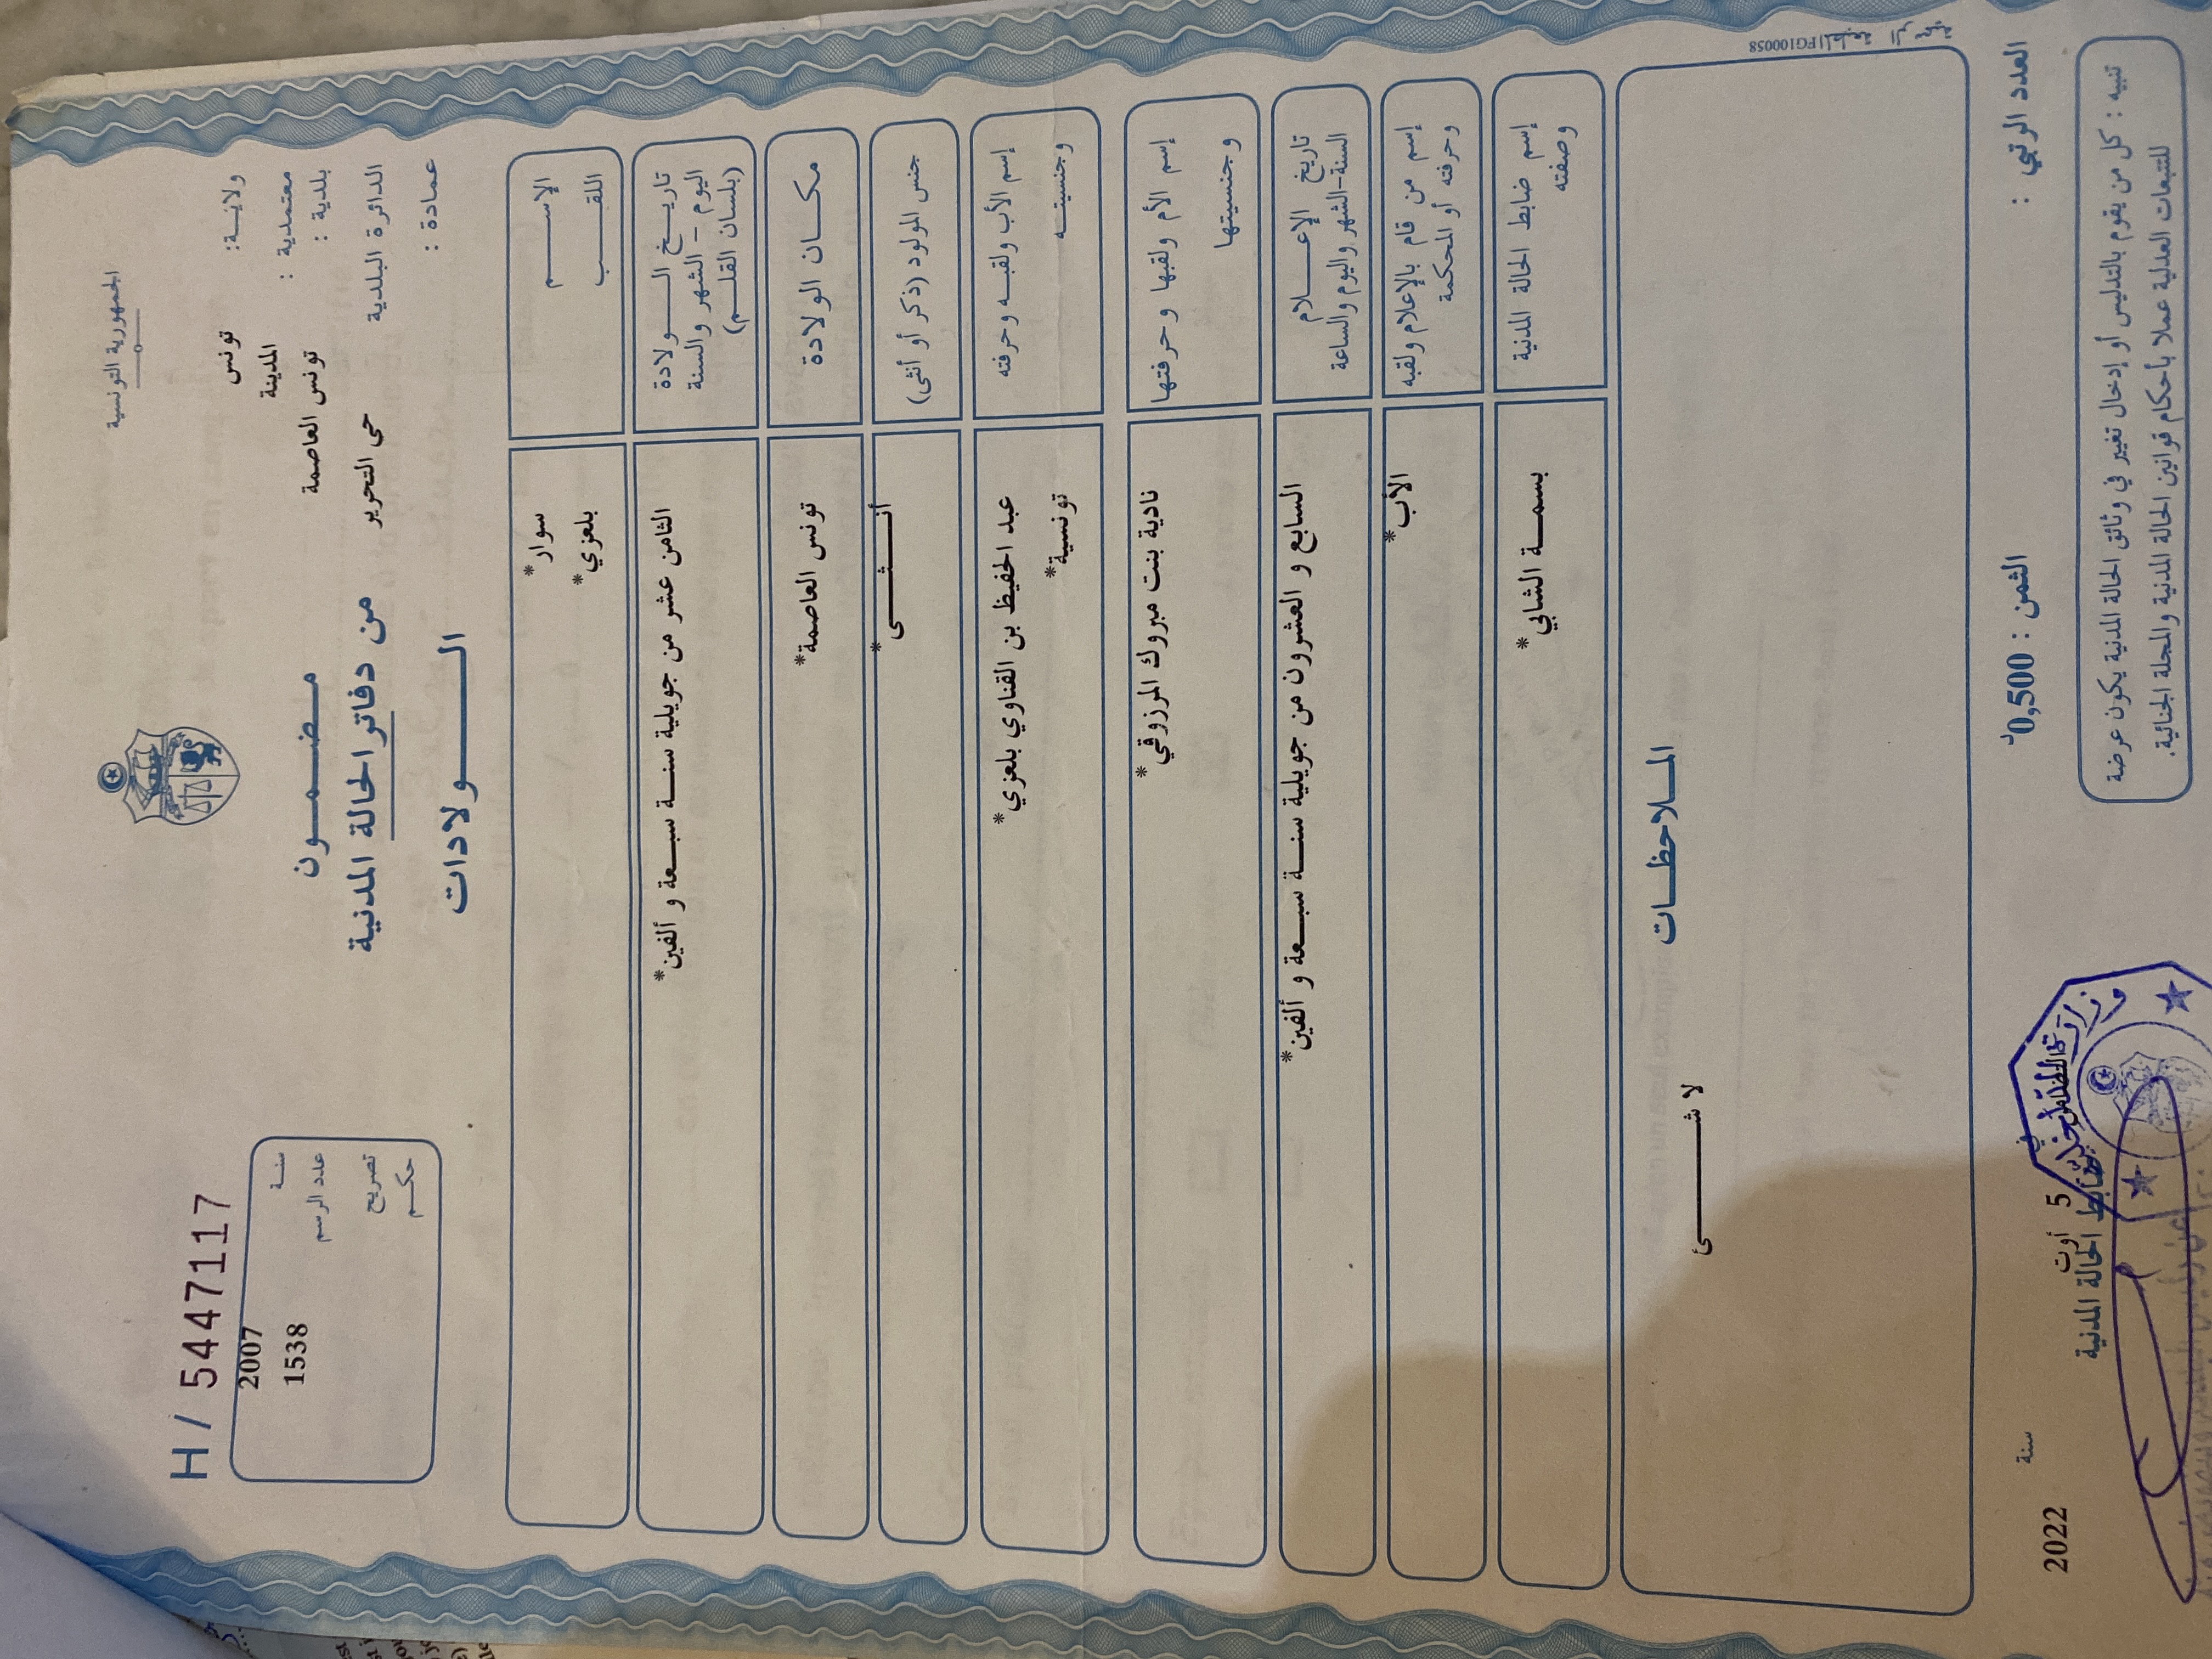 الجمهورية التونسية
H / 5447117
ولاية: تونس
معتمدية : المدينة
بلدية : تونس العاصمة
الدائرة البلدية حي التحرير
عمادة :
مضمون
من دفاتر الحالة المدنية
الولادات
سنة 2007
عدد الرسم 1538
تصريح
حكم
الإسم سوار*
اللقب بلعزي*
تاريخ الولادة
اليوم - الشهر والسنة
(بلسان القلم)
الثامن عشر من جويلية سنة سبعة و ألفين*
مكان الولادة تونس العاصمة*
جنس المولود (ذكر أو أنثى) أنثى*
إسم الأب ولقبه وحرفته عبد الحفيظ بن القناوي بلعزي*
وجنسيته تونسية*
إسم الأم ولقبها وحرفتها نادية بنت مبروك المرزوقي*
وجنسيتها
تاريخ الإعلام
السنة-الشهر واليوم والساعة
السابع و العشرون من جويلية سنة سبعة و ألفين*
إسم من قام بالإعلام ولقبه الأب*
وحرفته أو المحكمة
إسم ضابط الحالة المدنية بسمة الشابي*
وصفته
الملاحظات
لا شئ
FG100058
العدد الرتبي :
الثمن : 0,500د
5 أوت
سنة 2022
ضابط الحالة المدنية
تنبيه : كل من يقوم بالتدليس أو إدخال تغيير في وثائق الحالة المدنية يكون عرضة
للتتبعات العدلية عملا بأحكام قوانين الحالة المدنية والمجلة الجنائية.